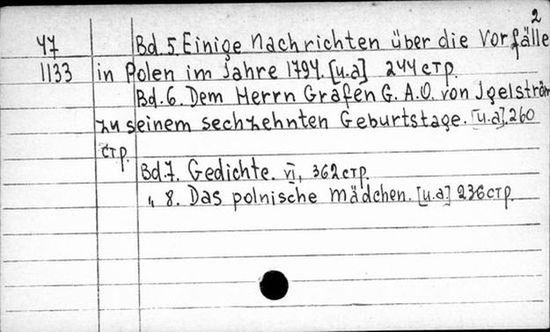 2
47 Bd. 5. Einige Nachrichten über die Vorfälle
1133 in Polen im Jahre 1794. [u.a] 244 стр.
Bd. 6. Dem Herrn Grafen G. A. O. von Igelström
zu seinem sechzehnten Geburtstage. [u.a]. 260
стр.
Bd. 7. Gedichte. VI, 362 стр.
„ 8. Das polnische Mädchen. [u.a] 236 стр.